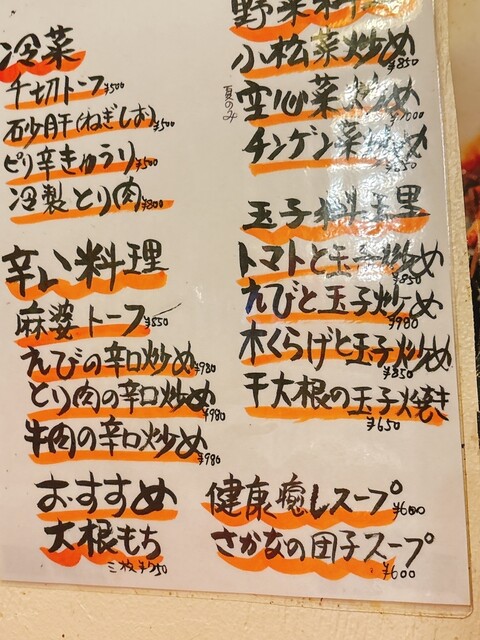 冷菜
千切トーフ ¥500
砂肝(ねぎしお) ¥500
ピリ辛きゅうり ¥500
冷製とり肉 ¥800
辛い料理
麻婆トーフ ¥550
えびの辛口炒め ¥980
とり肉の辛口炒め ¥980
牛肉の辛口炒め ¥980
おすすめ
大根もち
三枚 ¥750
野菜料理
小松菜炒め ¥850
夏のみ 空心菜炒め
チンゲン菜炒め
玉子料理
トマトと玉子炒め ¥850
えびと玉子炒め ¥980
木くらげと玉子炒め ¥850
干大根の玉子焼き
¥650
健康癒しスープ ¥600
さかなの団子スープ
¥600